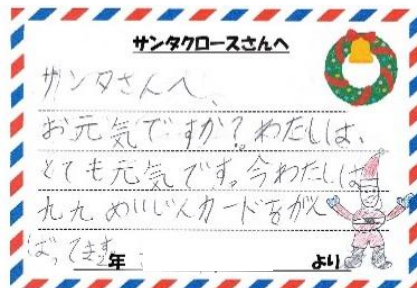 サンタクロースさんへ
サンタさんへ、
お元気ですか？わたしは、
とても元気です。今わたしは
九九めいじんカードをがん
ばってきます
年 より